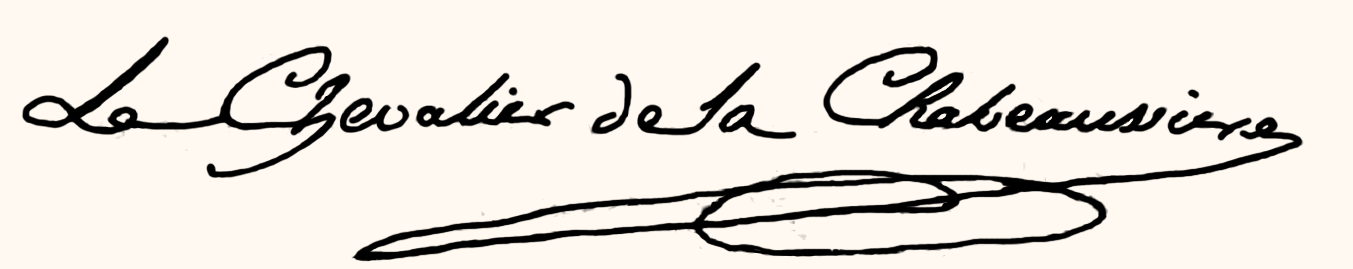 Le Chevalier de la Chabeaussiere